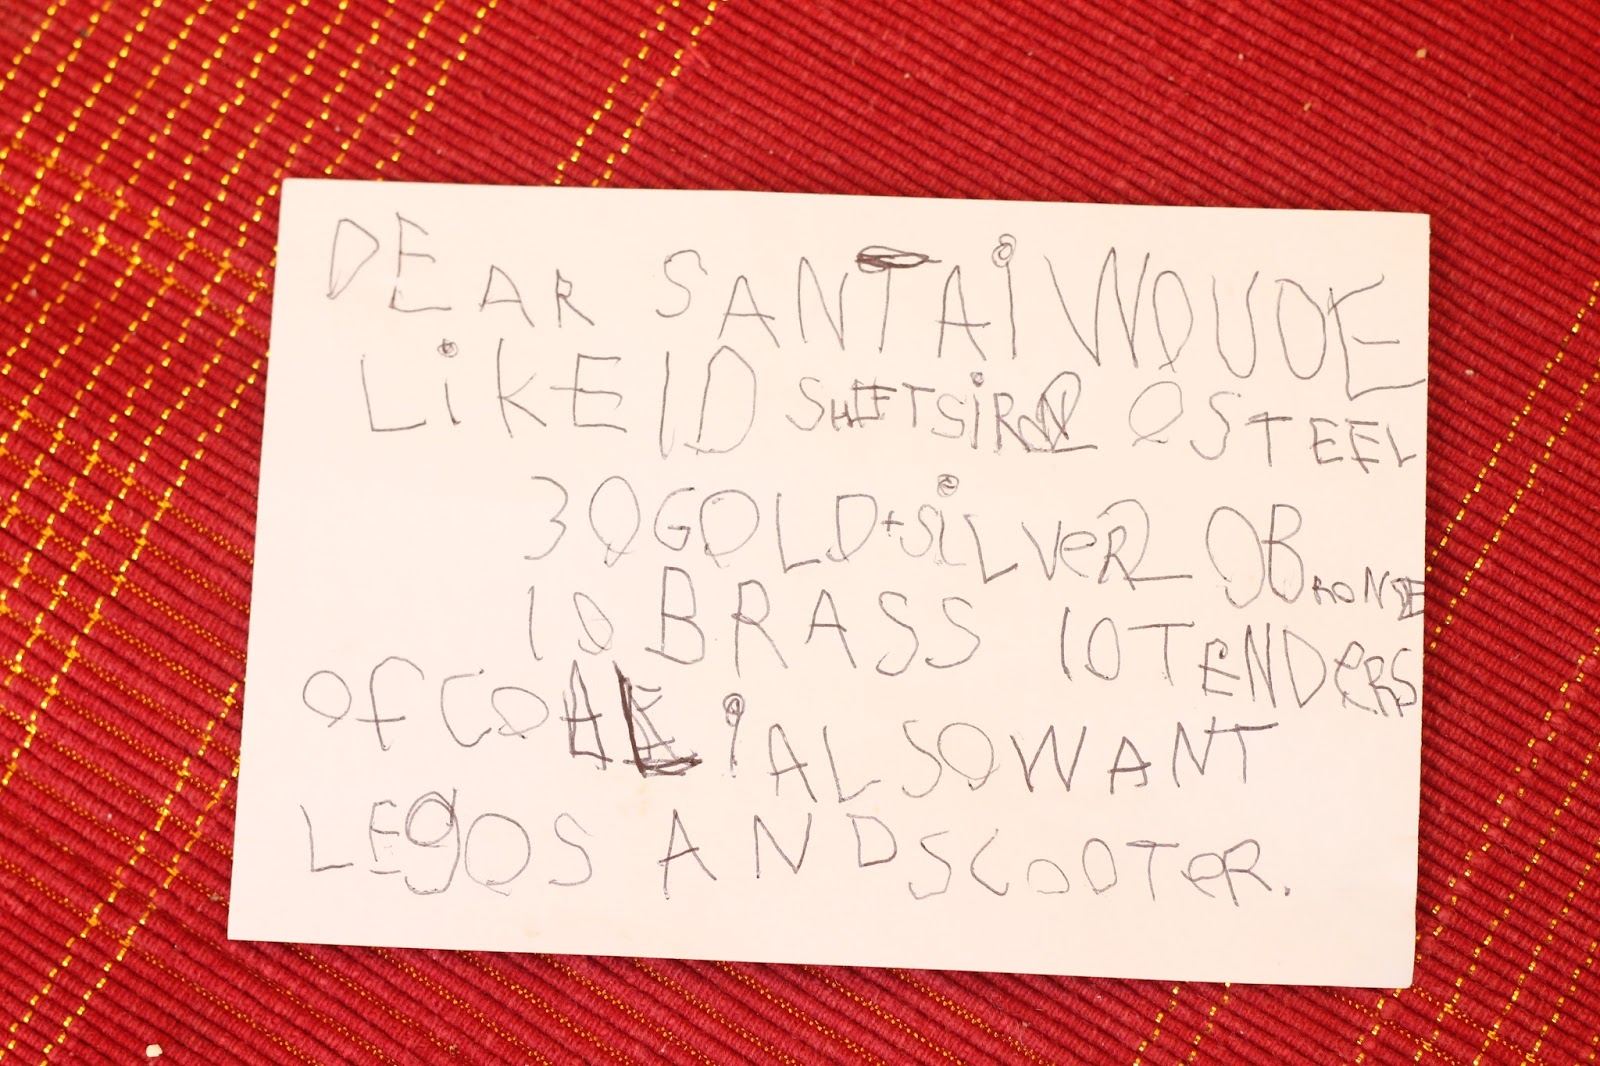 DEAR SANTA i WOUDE
LiKE 10 SHETS iRON 0 STEEL
30 GOLD + SiLVeR 0 BRONSE
10 BRASS 10 TENDeRS
OF COAL i ALSO WANT
LEgOS AND SCOOTeR.